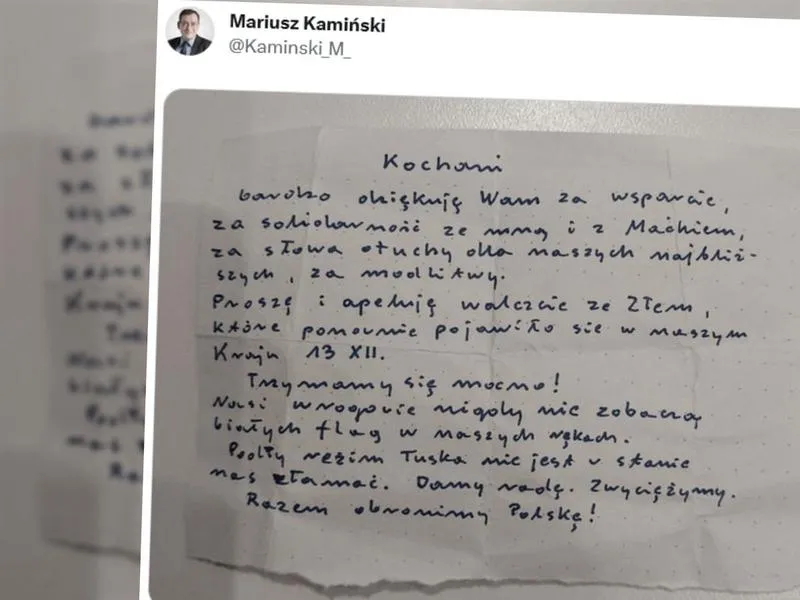 Mariusz Kamiński
@Kaminski_M_
Kochani
bardzo dziękuję Wam za wsparcie,
za solidarność ze mną i z Maćkiem,
za słowa otuchy dla naszych najbliż-
szych, za modlitwy.
Proszę i apeluję walczcie ze Złem,
które ponownie pojawiło się w naszym
Kraju 13 XII.
Trzymamy się mocno!
Nasi wrogowie nigdy nie zobaczą
białych flag w naszych rękach.
Podły reżim Tuska nie jest w stanie
nas złamać. Damy radę. Zwyciężymy.
Razem obronimy Polskę!